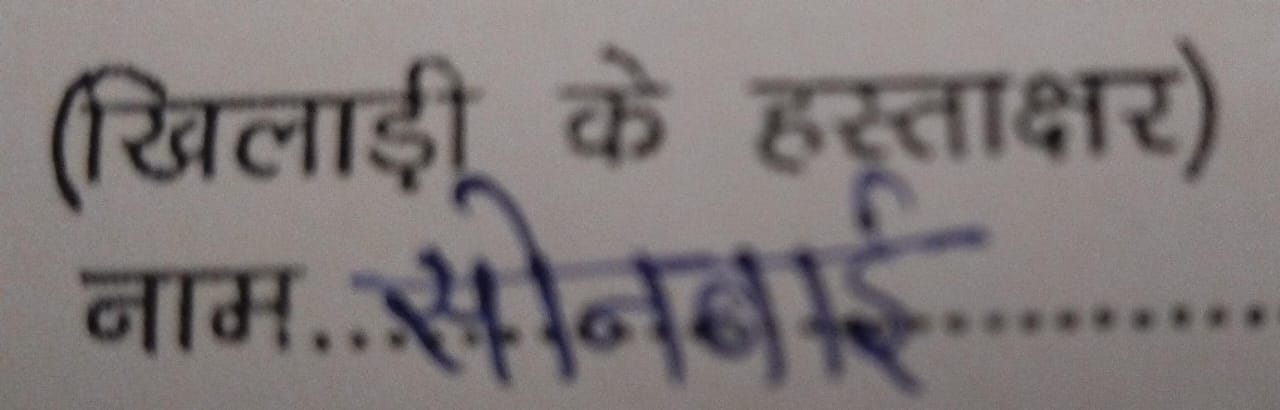 (खिलाड़ी के हस्ताक्षर)
नाम...सोनबाई............